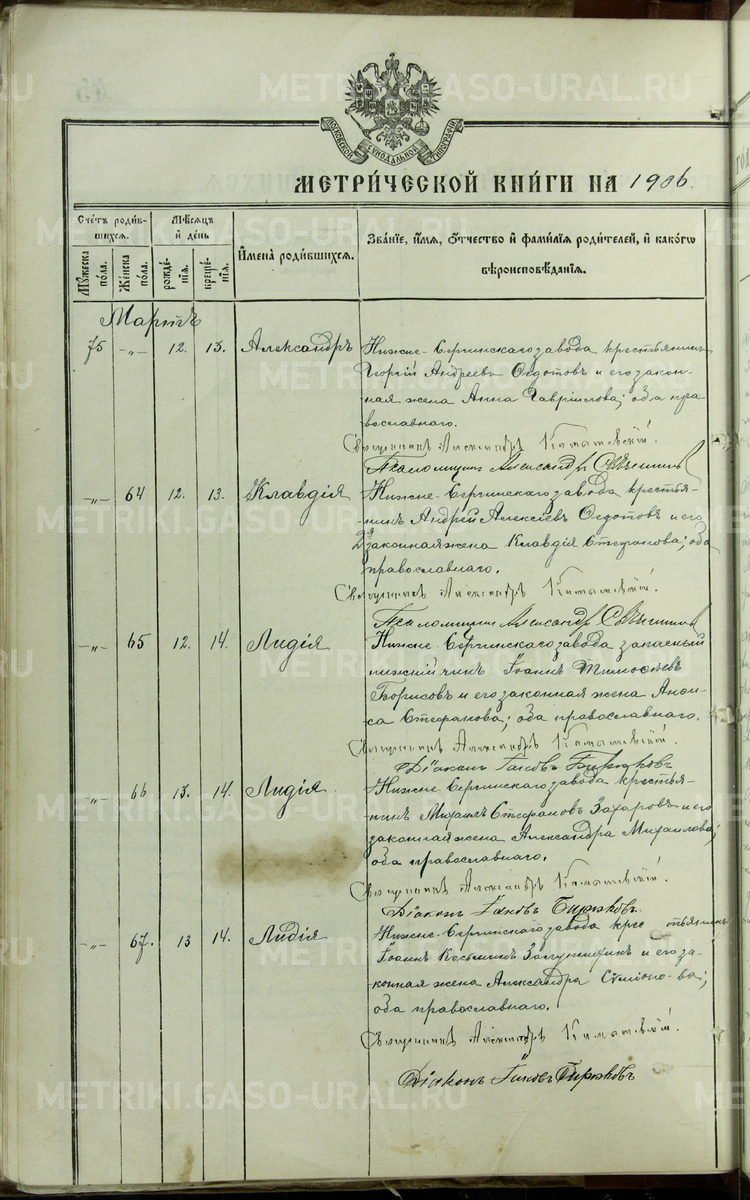 МОСКОВСКОЙ СѴНОДАЛЬНОЙ ТИПОГРАФІИ
МЕТРИ́ЧЕСКОЙ КНИ́ГИ НА 1906.
Сче́тъ роди́в-
шихсѧ.
Мꙋ́жеска
по́ла.
Же́нска
по́ла.
Мѣ́сѧцъ
и҆ де́нь
рожде́-
нїѧ.
креще́-
нїѧ.
И҆мена̀ роди́вшихсѧ.
Зва́нїе, и҆́мѧ, ѻ҆́тчество и҆ фами́лїѧ роди́телей, и҆ како́гѡ
вѣроисповѣ́данїѧ.
Мартъ
75 -„- 12. 13. Александръ
Нижне-Сергинскаго завода крестьянинъ
Георгій Андреевъ Ѳедотовъ и его закон-
ная жена Анна Гавріилова; оба пра-
вославнаго.
Священникъ Александръ
Псаломщикъ Александръ
-„- 64 12. 13. Клавдія
Нижне-Сергинскаго завода крестья-
нинъ Андрей Алексѣевъ Ѳедотовъ и его
2я законная жена Клавдія Стефанова; оба
православнаго.
Священникъ Александръ
Псаломщикъ Александръ
-„- 65 12. 14. Лидія
Нижне-Сергинскаго завода запасный
нижній чинъ Іоаннъ Тимоѳеевъ
Борисовъ и его законная жена Анѳи-
са Стефанова; оба православнаго.
Священникъ Александръ
Діаконъ Іаковъ Бирюковъ
-„- 66 13. 14. Лидія.
Нижне-Сергинскаго завода крестья-
нинъ Михаилъ Стефановъ Захаровъ и его
законная жена Александра Михаилова;
оба православнаго.
Священникъ Александръ
Діаконъ Іаковъ Бирюковъ.
-„- 67. 13 14. Лидія
Нижне-Сергинскаго завода крестьянинъ
Іоаннъ Косьминъ и его за-
конная жена Александра Сѵмеонова;
оба православнаго.
Священникъ Александръ
Діаконъ Іаковъ Бирюковъ
METRIKI.GASO-URAL.RU